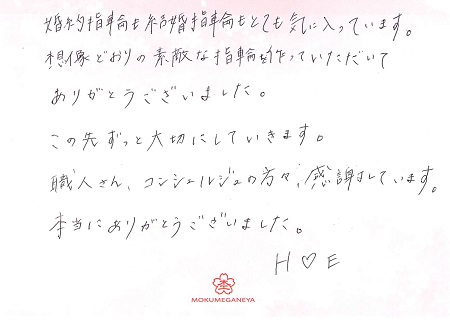 婚約指輪も結婚指輪もとても気に入っています。
想像どおりの素敵な指輪を作っていただいて
ありがとうございました。
この先ずっと大切にしていきます。
職人さん、コンシェルジュの方々、感謝しています。
本当にありがとうございました。
H♡E
MOKUMEGANEYA